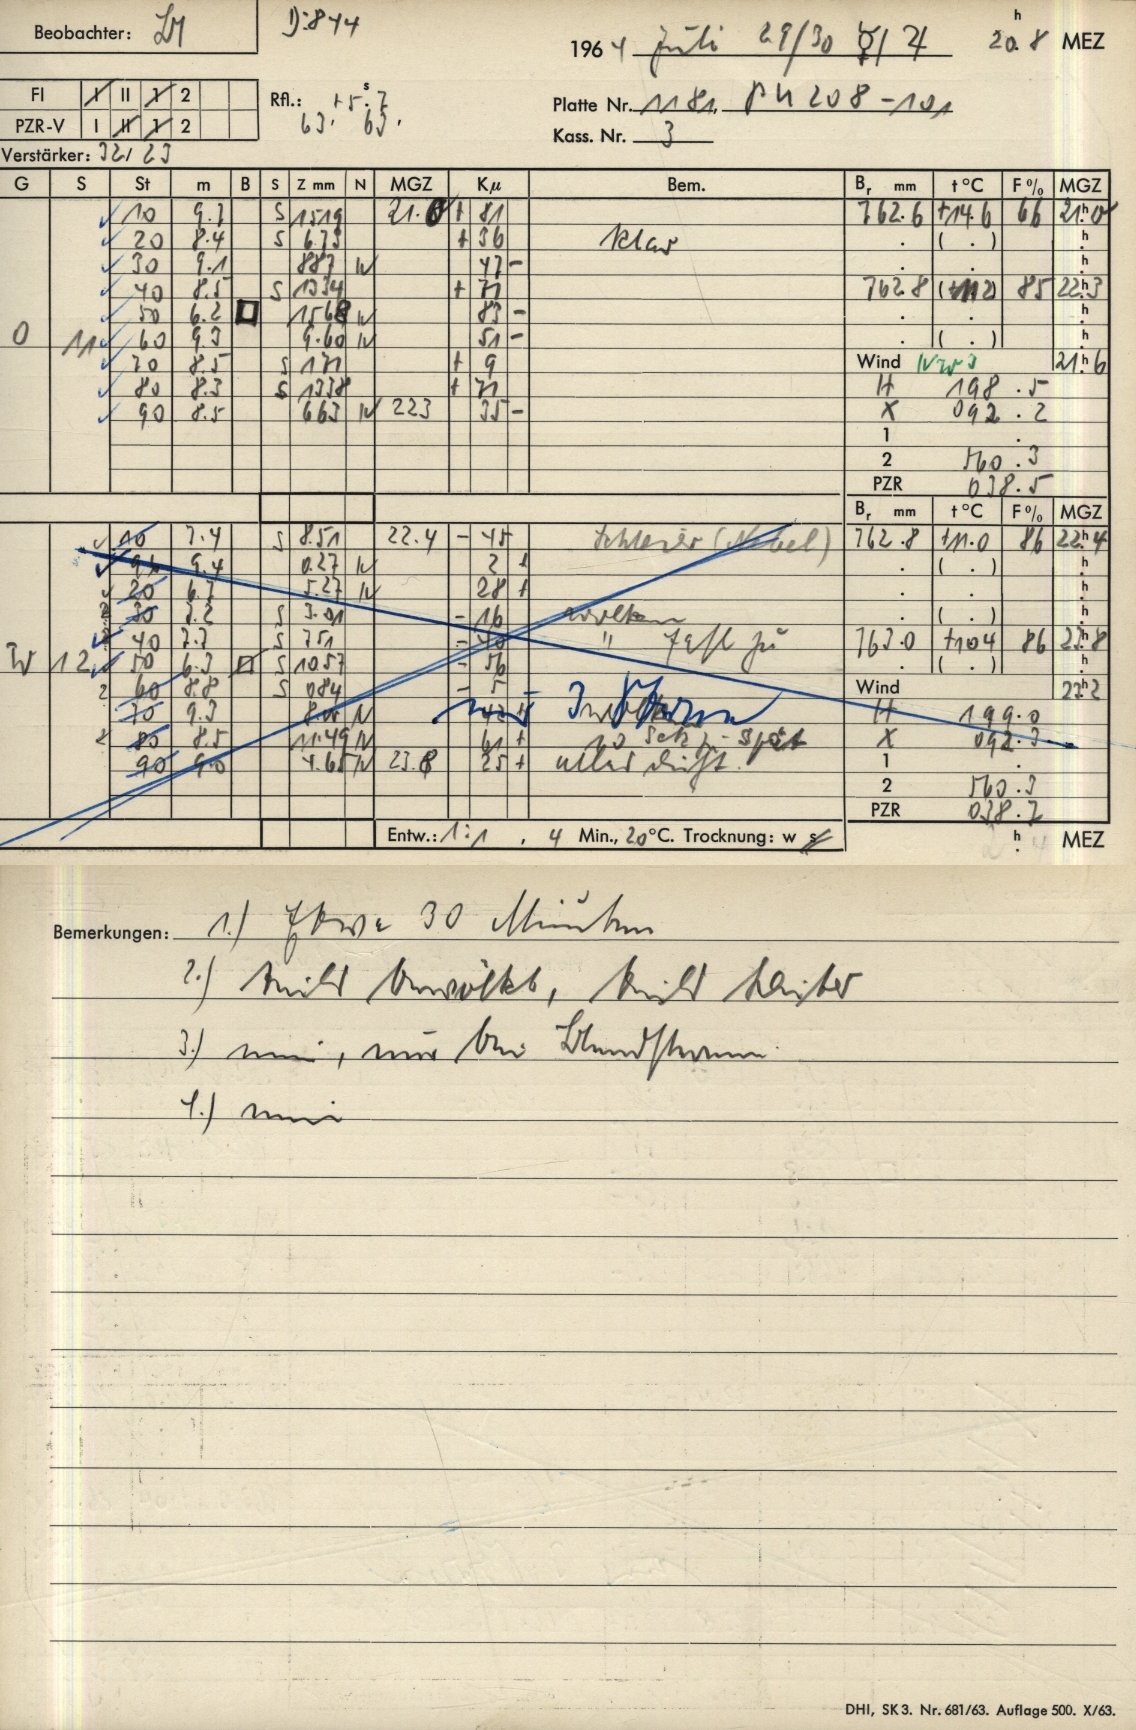 Beobachter: LM
D:844
1964 Juli 29/30 ☿/♃ 20.8 h MEZ
FI I II 1 2
Rfl.: +5.7 s
63. 63.
Platte Nr. 1181. PH 208-101
PZR-V I II 1 2
Kass. Nr. 3
Verstärker: 32/23
G S St m B S Z mm N MGZ Kμ Bem. Br mm t °C F % MGZ
10 9.7 S 1519 21.0 + 81 762.6 +14.6 66 21h0
20 8.4 S 6.73 + 36 klar . ( . ) h
30 9.1 887 N 47 - . . h
40 8.5 S 1334 + 71 762.8 85 22h3
50 6.2 □ 1568 N 83 - . . h
O 11 60 9.3 9.60 N 51 - . ( . ) h
70 8.5 S 171 + 9 Wind NW 3 21h6
80 8.3 S 1338 + 71 H 198.5
90 8.5 663 N 223 35 - X 092.2
1 .
2 560.3
PZR 038.5
Br mm t °C F % MGZ
10 7.4 S 8.51 22.4 - 45 Schleier (Nebel) 762.8 +11.0 86 22h4
9.4 0.27 N 2 + . ( . ) h
20 6.7 5.27 N 28 + . . h
30 7.2 S 3.01 - 16 Wolken . ( . ) h
40 7.7 S 751 - 40 " fast zu 763.0 +10.4 86 23h8
W 12 50 6.3 □ S 1057 - 56 . ( . ) h
60 8.8 S 084 - 5 Wind 23h2
70 9.3 N 42 + nur 3 Sterne H 199.0
80 8.5 11.49 N 61 + zu spät X 092.3
90 9.0 4.65 N 23.8 25 + alles dicht. 1 .
2 560.3
PZR 038.7
Entw.: 1:1, 4 Min., 20°C. Trocknung: w s
h MEZ
Bemerkungen: 1.) Etwa 30 Minuten
2.) teils bewölkt, teils heiter
3.) nein, nur bei
4.) nein
DHI, SK 3. Nr. 681/63. Auflage 500. X/63.